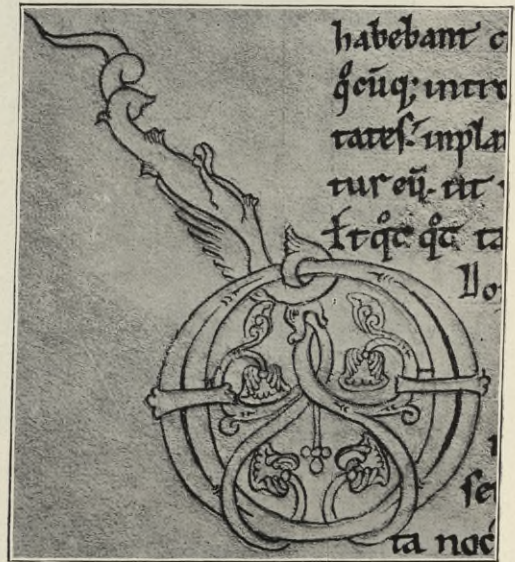 habebant c
qͦcūq; intro
tates. inpla
tur eū. ut
Et qͦt qͦt ta
ta noc